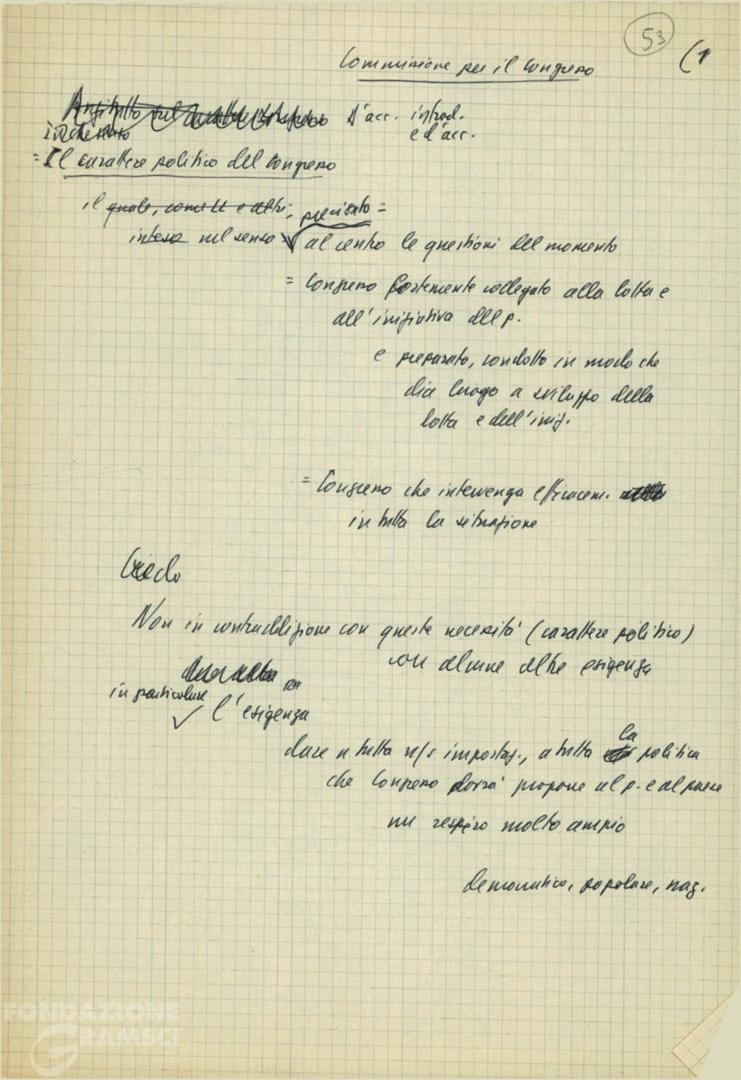 53
(1
Commissione per il Congresso
D'acc. introd.
e d'acc.
= Il carattere politico del Congresso
il quale, come tt e altri: precisato =
inteso nel senso = al centro le questioni del momento
= Congresso fortemente collegato alla lotta e
all'iniziativa del p.
e preparato, condotto in modo che
dia luogo a sviluppo della
lotta e dell'iniz.
= Congresso che intervenga efficacem.
in tutta la situazione
Credo
Non in contraddizione con queste necessità (carattere politico)
con alcune altre esigenze
in particolare
l'esigenza
dare a tutta n/s impostaz., a tutta la politica
che Congresso dovrà proporre al p. e al paese
un respiro molto ampio
democratico, popolare, naz.
FONDAZIONE
GRAMSCI